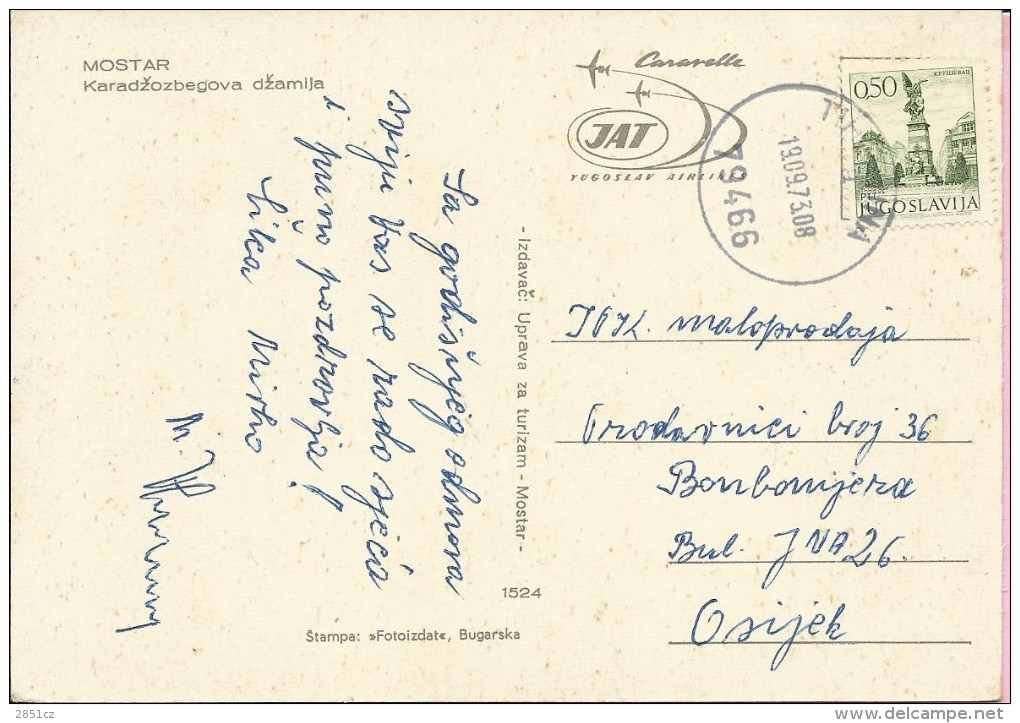 MOSTAR
Karadžozbegova džamija
Caravelle
JAT
YUGOSLAV AIRLINES
79466
19.09.73.08
0,50
JUGOSLAVIJA
Sa godišnjeg odmora
svije Vas se rado sjeća
i puno pozdravlja!
Lika Mirko
- Izdavač: Uprava za turizam - Mostar -
1524
Štampa: »Fotoizdat«, Bugarska
IVK. maloprodaja
Prodavnici broj 36
Bonbonijera
Bul. JNA 26.
Osijek
2851cz
www.delcampe.net